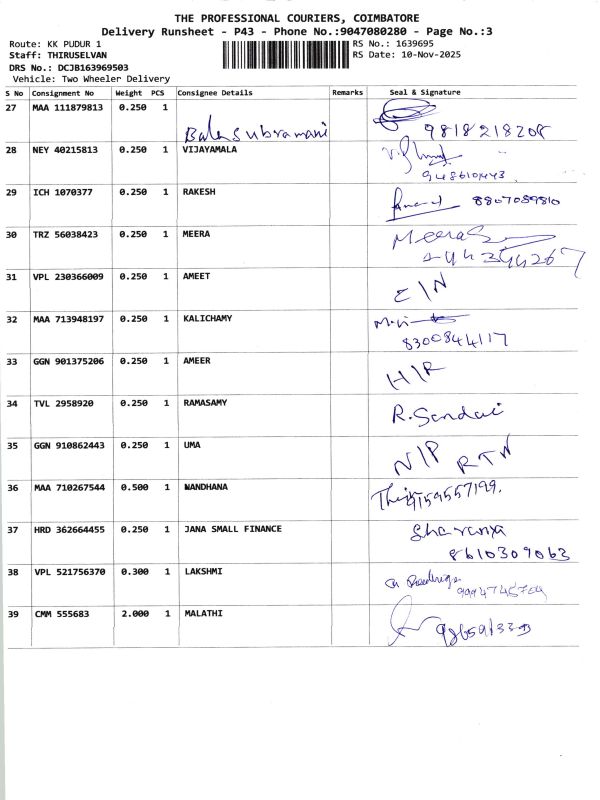 THE PROFESSIONAL COURIERS, COIMBATORE
Delivery Runsheet - P43 - Phone No.:9047080280 - Page No.:3
Route: KK PUDUR 1 RS No.: 1639695
Staff: THIRUSELVAN RS Date: 10-Nov-2025
DRS No.: DCJB163969503
Vehicle: Two Wheeler Delivery
S No Consignment No Weight PCS Consignee Details Remarks Seal & Signature
27 MAA 111879813 0.250 1
Balasubramani 9818218208
28 NEY 40215813 0.250 1 VIJAYAMALA
29 ICH 1070377 0.250 1 RAKESH 8807089810
30 TRZ 56038423 0.250 1 MEERA Meera
31 VPL 230366009 0.250 1 AMEET
32 MAA 713948197 0.250 1 KALICHAMY
8300844117
33 GGN 901375206 0.250 1 AMEER
34 TVL 2958920 0.250 1 RAMASAMY
35 GGN 910862443 0.250 1 UMA N/P RTN
36 MAA 710267544 0.500 1 NANDHANA 9159557199.
37 HRD 362664455 0.250 1 JANA SMALL FINANCE Sharanya
8610309063
38 VPL 521756370 0.300 1 LAKSHMI
39 CMM 555683 2.000 1 MALATHI